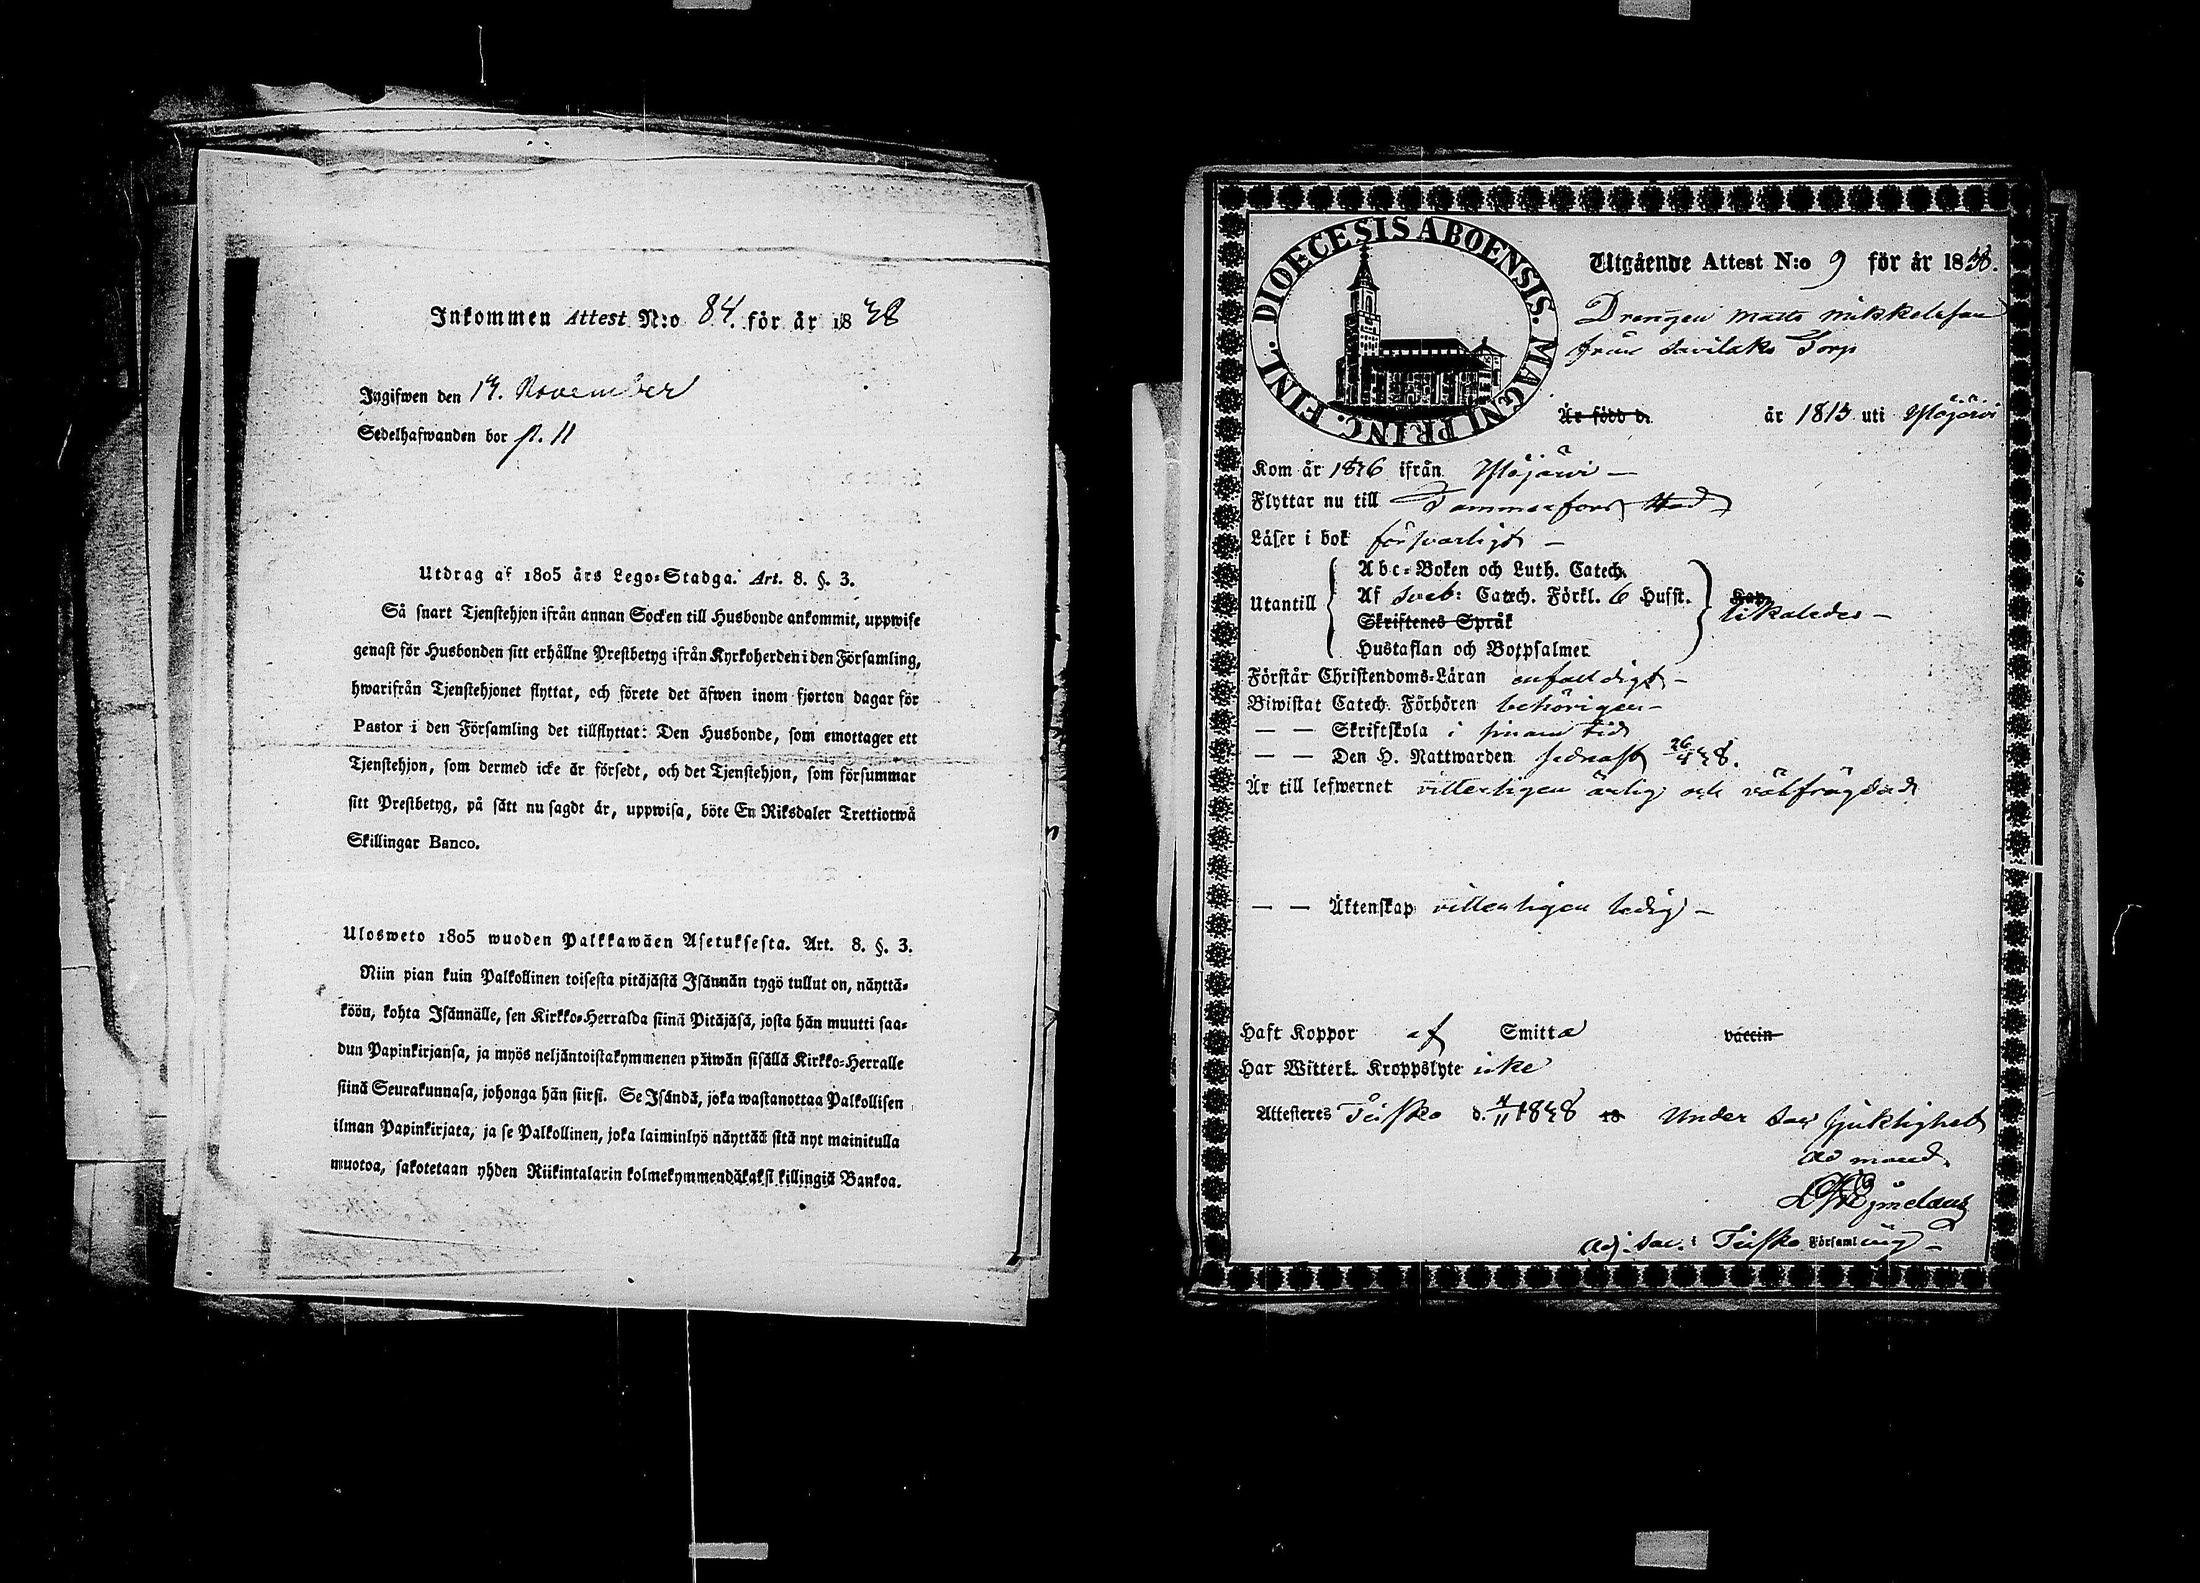 Inkommen Attest N:o 84. för år 1848
Ingifwen den 14. November
Sedelhafwanden bor p. 11
Utdrag af 1805 års Lego-Stadga. Art. 8. §. 3.
Så snart Tjenstehjon ifrån annan Socken till Husbonde ankommit, uppwise
genast för Husbonden sitt erhållne Prestbetyg ifrån Kyrkoherden i den Församling,
hwarifrån Tjenstehjonet flyttat, och förete det äfwen inom fjorton dagar för
Pastor i den Församling det tillflyttat: Den Husbonde, som emottager ett
Tjenstehjon, som dermed icke är försedt, och det Tjenstehjon, som försummar
sitt Prestbetyg, på sätt nu sagdt är, uppwisa, böte En Riksdaler Trettiotwå
Skillingar Banco.
Ulosweto 1805 wuoden Palkkawäen Asetuksesta. Art. 8. §. 3.
Niin pian kuin Palkollinen toisesta pitäjästä Isännän tygö tullut on, näyttä-
köön, kohta Isännälle, sen Kirkko-Herralda siinä Pitäjäsä, josta hän muutti saa-
dun Papinkirjansa, ja myös neljäntoistakymmenen päiwän sisällä Kirkko-Herralle
siinä Seurakunnasa, johonga hän siirsi. Se Isändä, joka wastanottaa Palkollisen
ilman Papinkirjata, ja se Palkollinen, joka laiminlyö näyttää sitä nyt mainitulla
muotoa, sakotetaan yhden Riikintalarin kolmekymmendäkaksi killingiä Bankoa.
DIOECESIS ABOENSIS. MAGNI PRINC. FINL.
Utgående Attest N:o 9 för år 1848.
Drengen Matts Mikkelsson
från Savilaks Torp
Är född d. år 1815 uti Ylöjärvi
Kom år 1846 ifrån Ylöjärvi —
Flyttar nu till Tammerfors Stad
Läser i bok försvarligt —
Utantill
Abc-Boken och Luth. Catech.
Af Sveb: Catech. Förkl. 6 Husst. Kap.
Skriftenes Språk
Hustaflan och Botpsalmer
likaledes —
Förstår Christendoms-Läran enfaldigt —
Biwistat Catech. Förhören behörigen —
— — Skriftskola i sinom tid
— — Den H. Nattwarden sednast 26/4 48.
Är till lefwernet vitterligen ärlig och välfrägdad
— — Äktenskap vitterligen ledig —
Haft Koppor af Smitta vaccin
Har Witterl. Kroppslyte icke
Attesteres Teisko d. 4/11 1848 18 Under Sac sjuklighet
Ad mand.
Adj. Sac. i Teisko Församling —